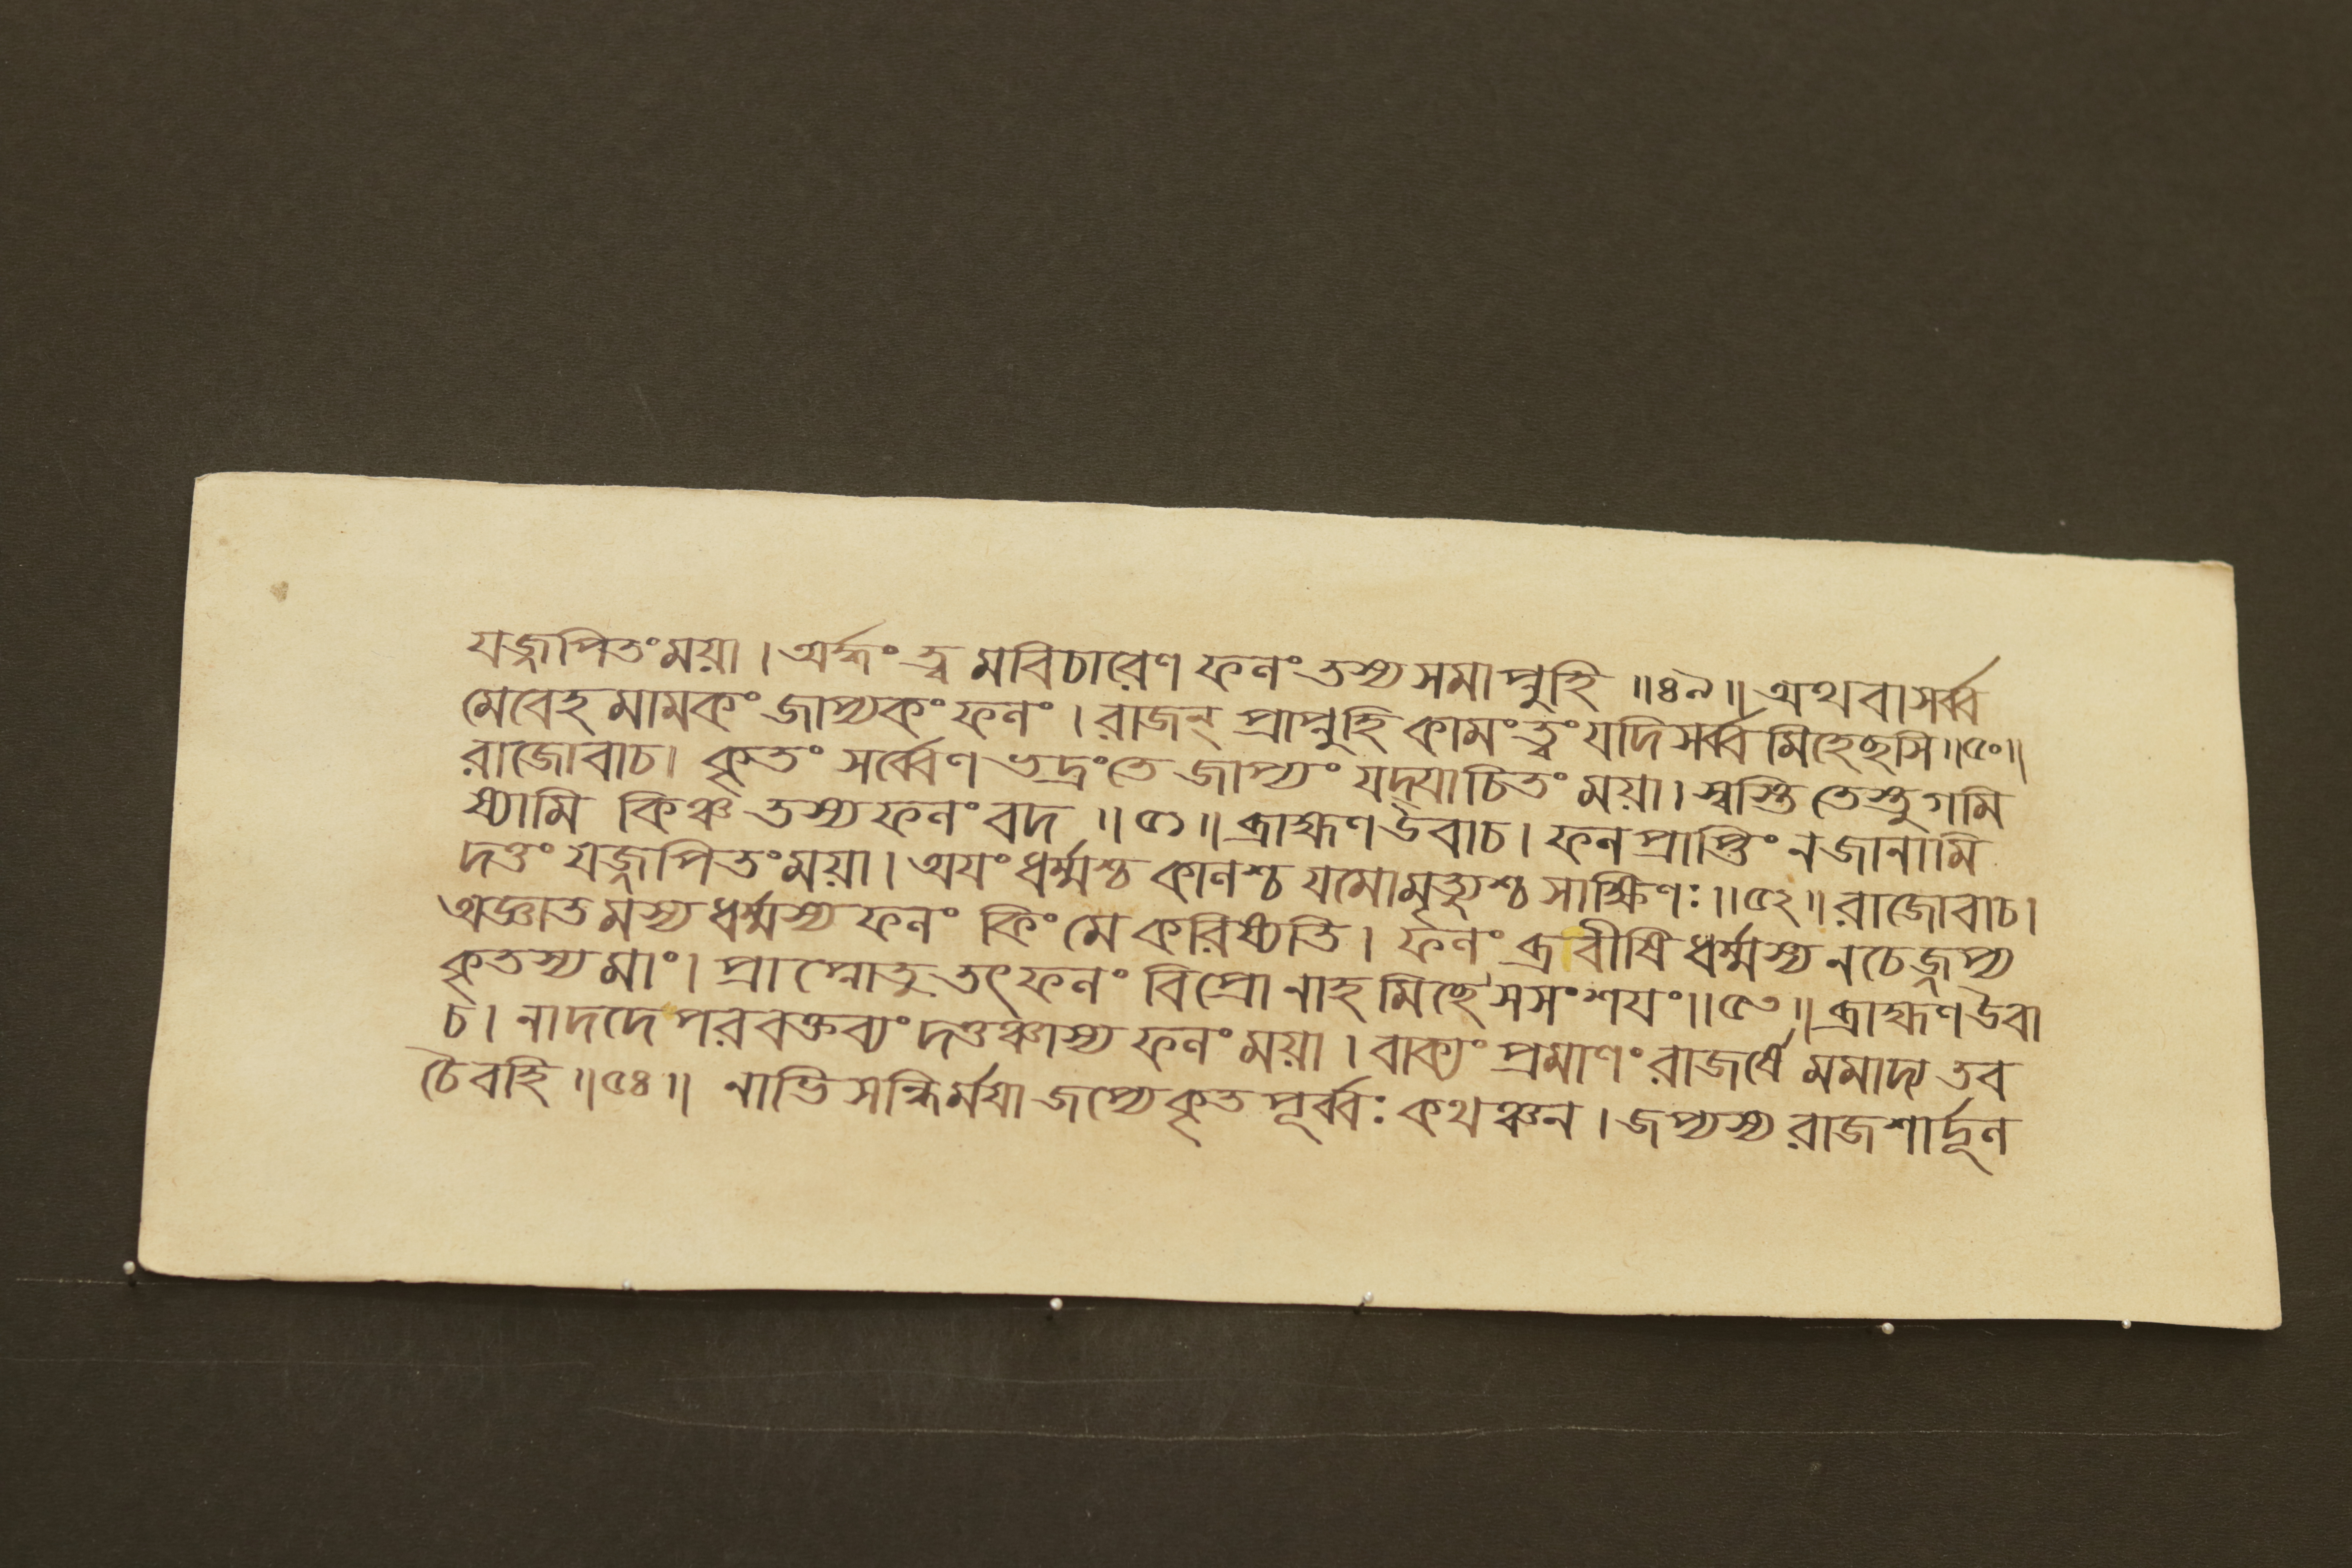 যজ্জপিতংময়া । অর্দ্ধং ত্ব মবিচারেণ ফলং তস্য সমাপ্নুহি ॥৪৯॥ অথবা সর্ব্ব
মেবেহ মামকং জাপ্যকং ফলং । রাজন্ প্রাপ্নুহি কামং ত্বং যদি সর্ব্ব মিহেছসি ॥৫০॥
রাজোবাচ। কৃতং সর্ব্বেণ ভদ্রংতে জাপ্যং যদ্যাচিতং ময়া । স্বস্তি তেস্তু গমি
ষ্যামি কিঞ্চ তস্য ফলং বদ ॥৫১॥ ব্রাহ্মণ উবাচ । ফল প্রাপ্তিং ন জানামি
দত্তং যজ্জপিতংময়া । অযং ধর্ম্মশ্চ কালশ্চ যমোমৃত্যুশ্চ সাক্ষিণঃ ॥৫২॥ রাজোবাচ।
অজ্ঞাত মস্য ধর্ম্মস্য ফলং কিং মে করিষ্যতি । ফলং ব্রবীষি ধর্ম্মস্য নচেজ্জপ্য
কৃতস্য মাং । প্রাপ্নোতু তৎফলং বিপ্রো নাহ মিছে সসংশযং ॥৫৩॥ ব্রাহ্মণ উবা
চ । নাদদে পরবক্তব্যং দত্তঞ্চাস্য ফলং ময়া । বাক্যং প্রমাণং রাজর্ষে মমাদ্য তব
চৈবহি ॥৫৪॥ নাভিসন্ধির্ময়া জপ্যেকৃত পূর্ব্বঃ কথঞ্চন । জপ্যস্য রাজশার্দূল